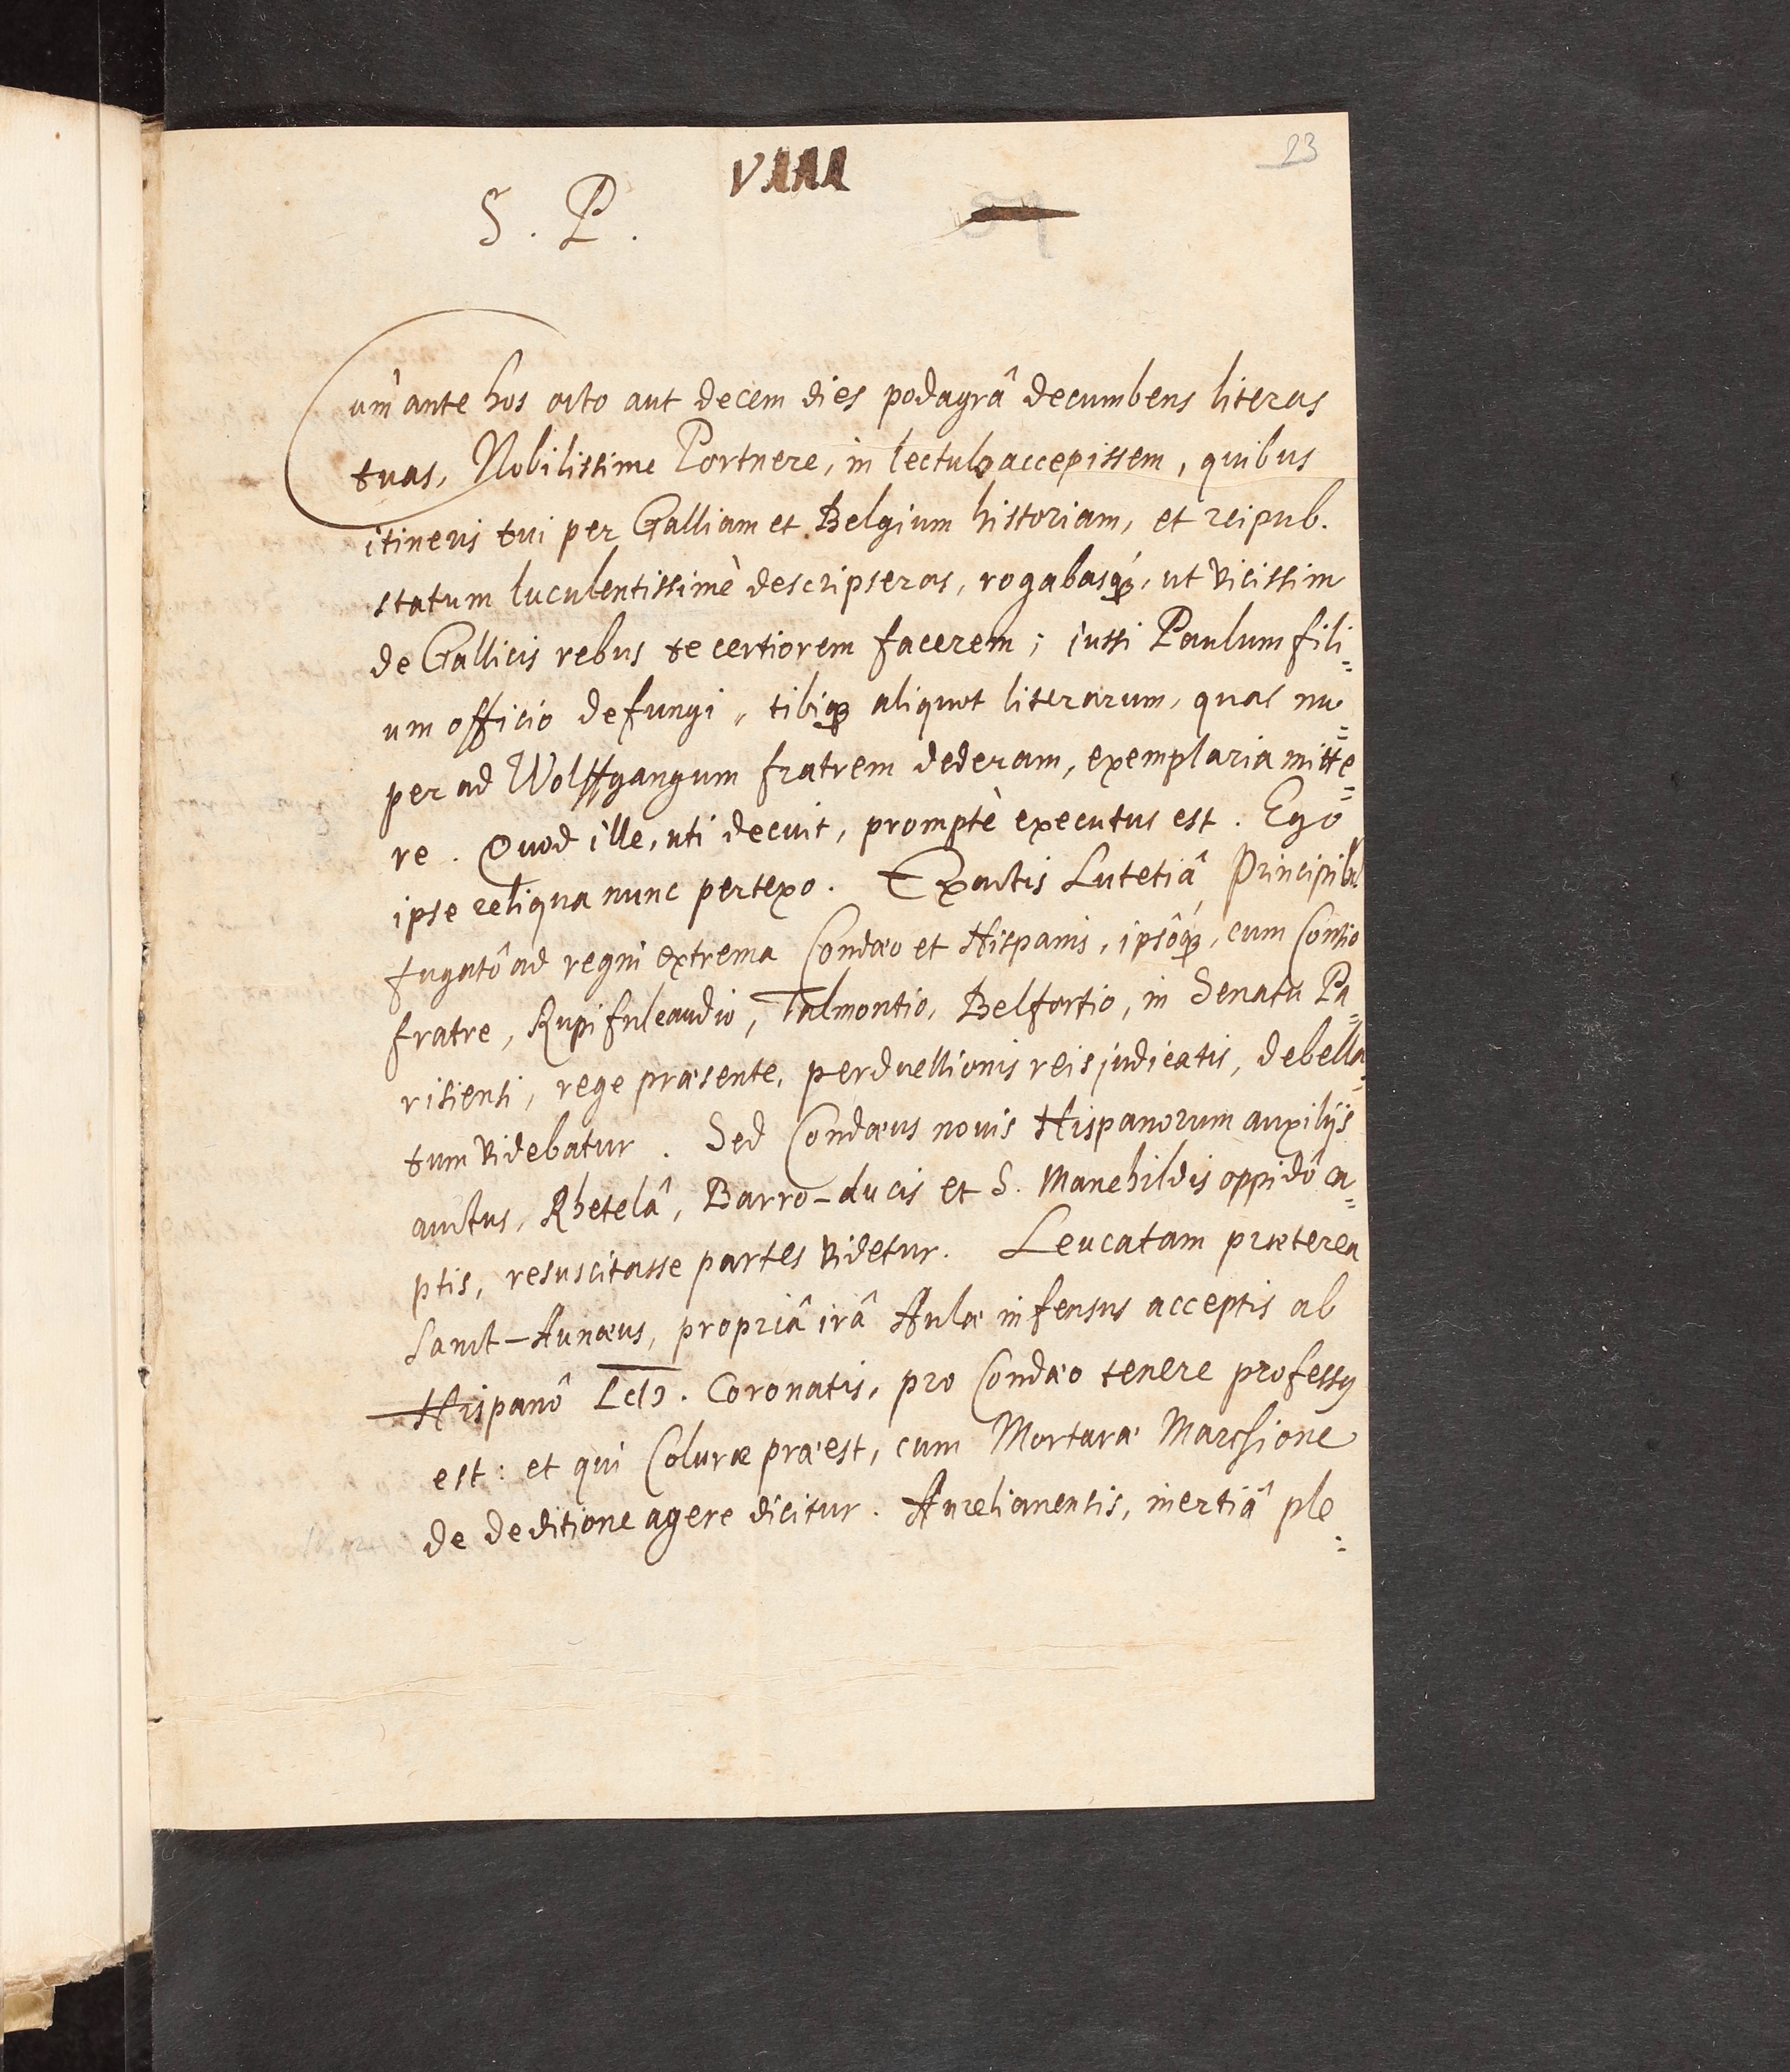 23
VIIII
S. P.
Cum ante hos octo aut decem dies podagrâ decumbens literas
tuas, Nobilissime Portnere, in lectulo accepissem, quibus
itineris tui per Galliam et Belgium historiam, et reipub.
statum luculentissimè descripseras, rogabasq́ue, ut vicissim
de Gallicis rebus te certiorem facerem; jussi Paulum fili=
um officio defungi, tibiq́ue aliquot literarum, quas nu=
per ad Wolffgangum fratrem dederam, exemplaria mitte=
re. Quod ille, uti decuit, promptè executus est. Ego
ipse reliqua nunc pertexo. Exactis Lutetiâ Principib.
fugatô ad regni extrema Condæo et Hispanis, ipsôq́ue, cum Contio
fratre, Rupifulcaudio, Talmontio, Belfortio, in Senatu Pa=
risiensi, rege præsente, perduellionis reis judicatis, debella=
tum videbatur. Sed Condæus novis Hispanorum auxilijs
auctus, Rhetelâ, Barro-ducis et S. Manehildis oppidô ca=
ptis, resuscitasse partes videtur. Leucatam præterea
Sanct-Aunæus, propriâ irâ Aulæ infensus acceptis ab
Hispanô Coronatis, pro Condæo tenere professus
est: et qui Coluræ præest, cum Mortaræ Marchione
de deditione agere dicitur. Aurelianensis, inertiâ ple=